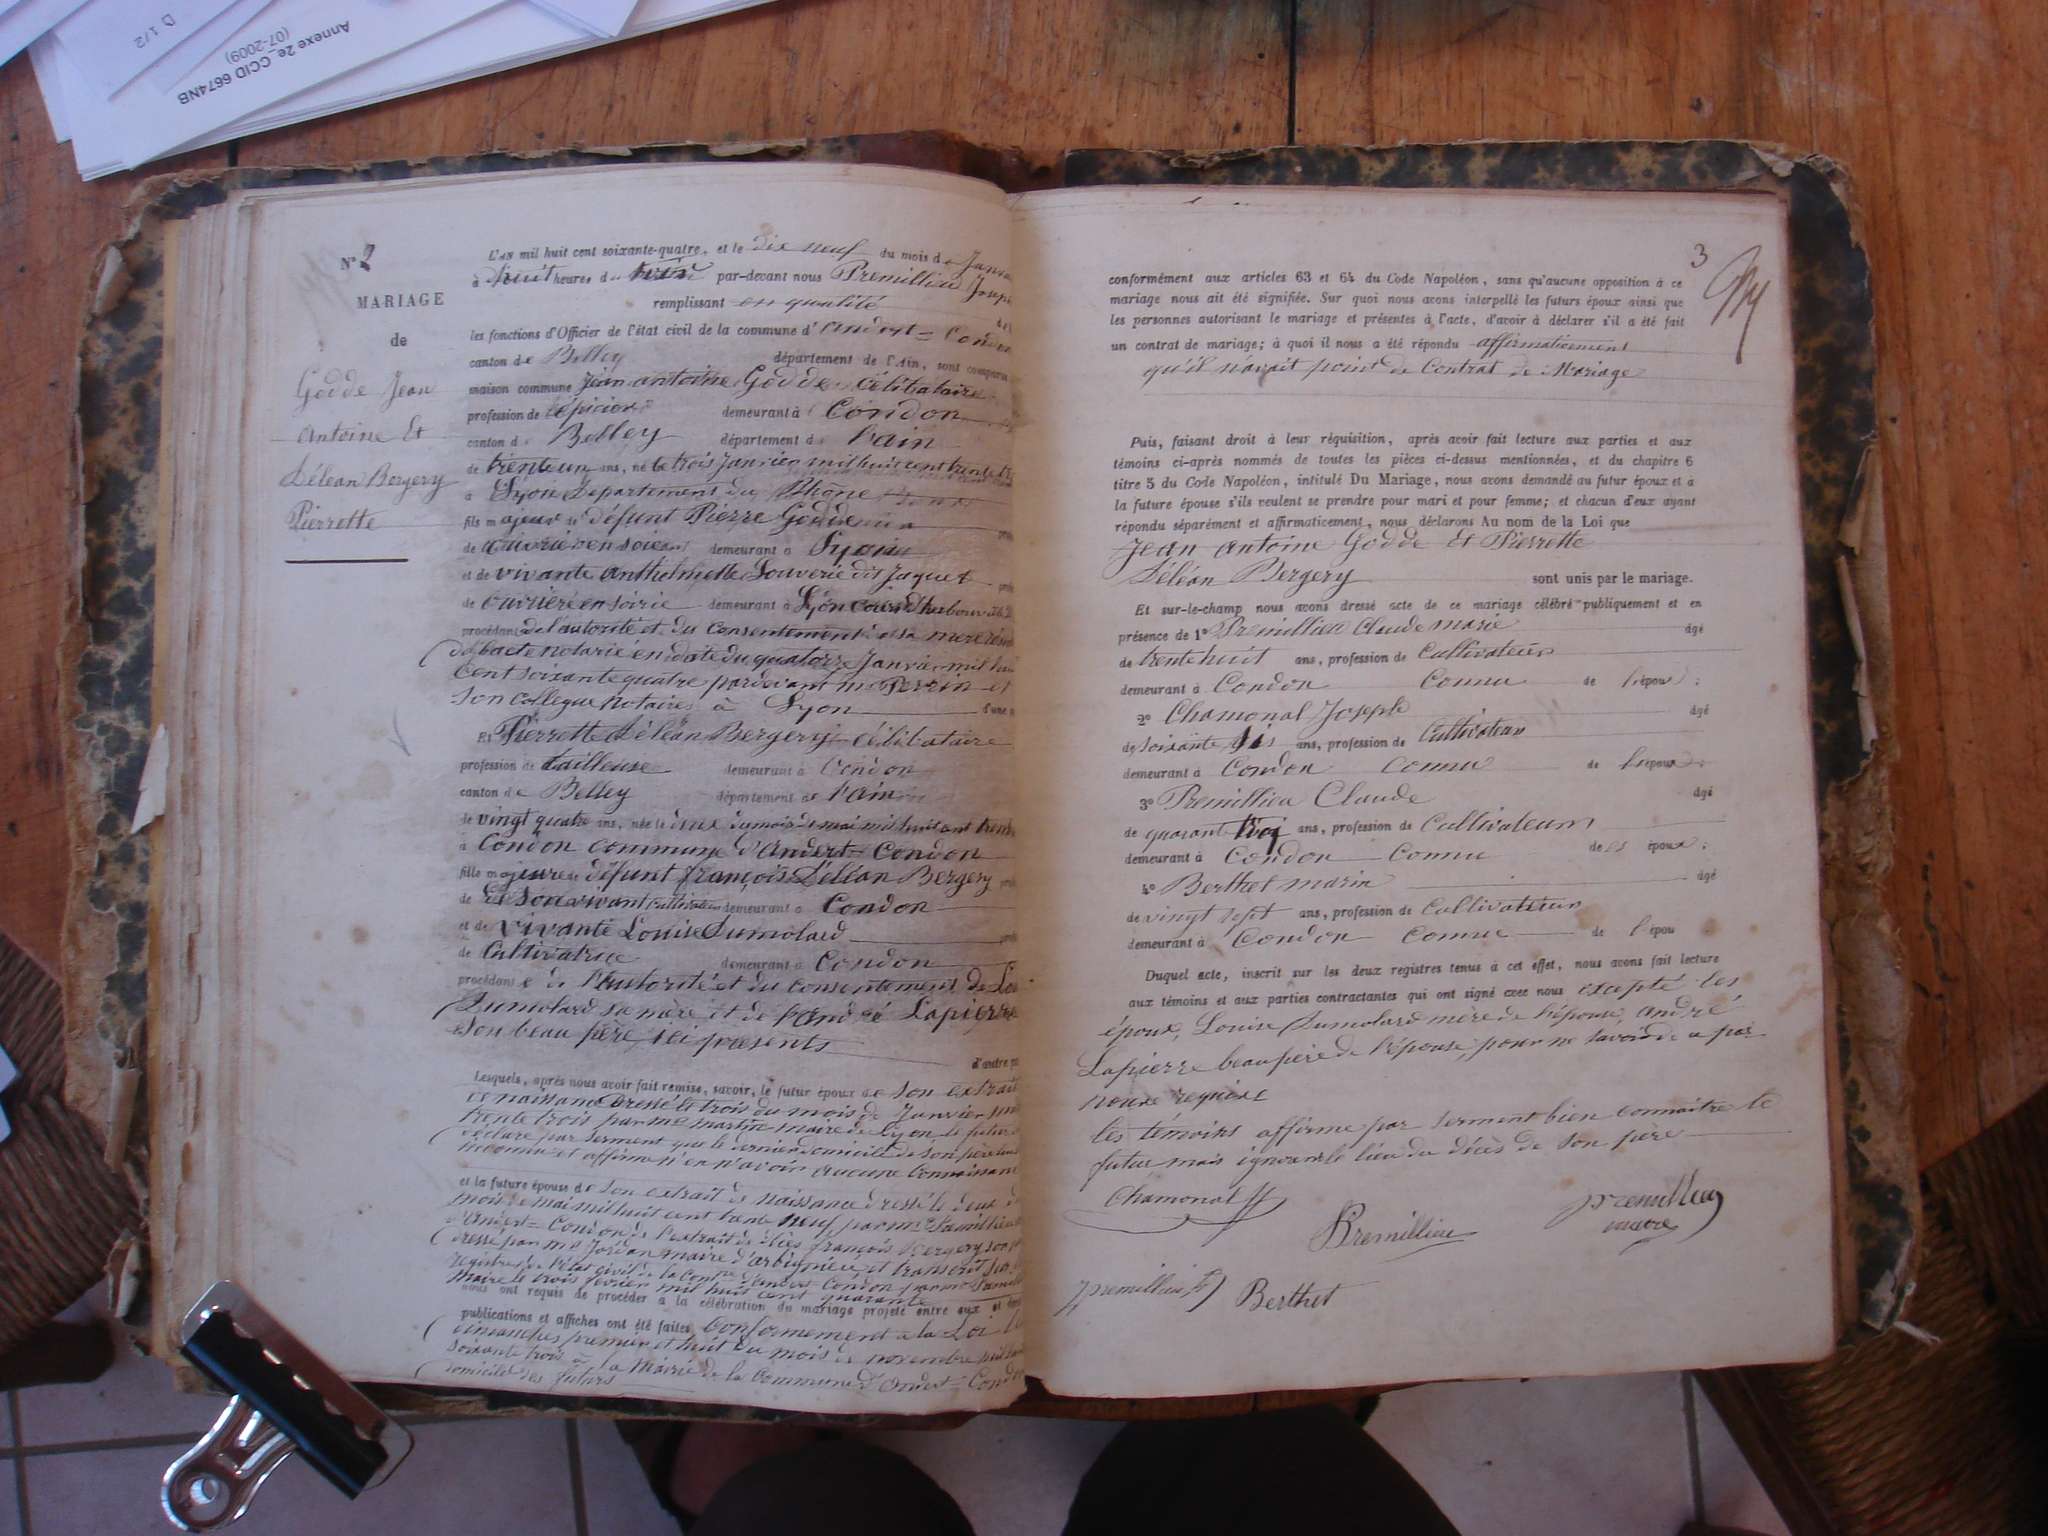 Annexe 2e_CCID 6674NB
(07-2009)
D 1/2
N° 2
MARIAGE
de
Godde Jean
Antoine Et
Léléan Bergery
Pierrette
L'AN mil huit cent soixante-quatre, et le dix neuf du mois de
à huit heures du par-devant nous Premillieu
remplissant en qualité
les fonctions d'Officier de l'état civil de la commune d'Andert=
canton de Belley département de l'Ain, sont
maison commune Jean antoine Godde Célibataire
profession de épicier demeurant à Condon
canton de Belley département de l'ain
de trente un ans, né le trois Janvier mil huit cent trente
à Lyon Département du Rhône
fils majeur de défunt Pierre Godde
de demeurant à Lyon
et de vivante Jaquet
de ouvrière en soirie demeurant à Lyon
procédant de l'autorité et du consentement de sa mère
acte notarié en date du quatorze Janvier mil
Cent soixante quatre pardevant me Perrin et
son collegue notaires à Lyon
Et Pierrette Léléan Bergery célibataire
profession de tailleuse demeurant à Condon
canton de Belley département de l'ain
de vingt quatre ans, née le deux du mois de mai mil huit cent
à Condon commune d'Andert=Condon
fille majeure de défunt françois Léléan Bergery
de En son vivant cultivateur demeurant à Condon
et de vivante Louise Dumolard
de Cultivatrice demeurant à Condon
procédant e de l'autorité et du consentement de
Dumolard sa mère et de andré Lapierre
son beau père, ici présents
Lesquels, après nous avoir fait remise, savoir, le futur époux de son extrait
de naissance Dressé le trois du mois de Janvier
trente trois par me martin maire de Lyon, le futur
déclare par serment que le dernier domicile de son père
inconnu et affirme n'en avoir aucune
et la future épouse de son extrait de naissance dressé le deux
mois de mai mil huit cent trente neuf par mr
d'Andert=Condon de l'extrait de décès françois Bergery
dressé par me Jordan maire d'arbignieu, et transcrit
registres de l'état civil de la
maire le trois février mil huit cent quarante
nous ont requis de procéder à la célébration du mariage projeté entre eux et
publications et affiches ont été faites, Conformément à la Loi
dimanches premier et huit du mois de novembre
soixante trois à la Mairie de la Commune d'Andert=
domicile des futurs
3
conformément aux articles 63 et 64 du Code Napoléon, sans qu'aucune opposition à ce
mariage nous ait été signifiée. Sur quoi nous avons interpellé les futurs époux ainsi que
les personnes autorisant le mariage et présentes à l'acte, d'avoir à déclarer s'il a été fait
un contrat de mariage; à quoi il nous a été répondu affirmativement
qu'il n'avait point de Contrat de Mariage
Puis, faisant droit à leur réquisition, après avoir fait lecture aux parties et aux
témoins ci-après nommés de toutes les pièces ci-dessus mentionnées, et du chapitre 6
titre 5 du Code Napoléon, intitulé Du Mariage, nous avons demandé au futur époux et à
la future épouse s'ils veulent se prendre pour mari et pour femme; et chacun d'eux ayant
répondu séparément et affirmativement, nous déclarons Au nom de la Loi que
Jean antoine Godde Et Pierrette
Léléan Bergery sont unis par le mariage.
Et sur-le-champ nous avons dressé acte de ce mariage célébré publiquement et en
présence de 1° Premillieu Claude marie âgé
de trente huit ans, profession de Cultivateur
demeurant à Condon Connu de l'époux;
2° Chamonal Joseph âgé
de soixante ans, profession de Cultivateur
demeurant à Condon Connu de l'époux;
3° Premillieu Claude âgé
de quarant ans, profession de Cultivateur
demeurant à Condon Connu des époux;
4° Berthet marin âgé
de vingt sept ans, profession de Cultivateur
demeurant à Condon Connu de l'épou
Duquel acte, inscrit sur les deux registres tenus à cet effet, nous avons fait lecture
aux témoins et aux parties contractantes qui ont signé avec nous excepté les
époux, Louise Dumolard mère de l'épouse, andré
Lapierre beau père de l'épouse, pour ne savoir de a par
nous requis
les témoins affirme par serment bien connaitre le
futur mais ignorant le lieu du décès de son père
Chamonal
Premillieu
premillieu
maire
premillieu
Berthet